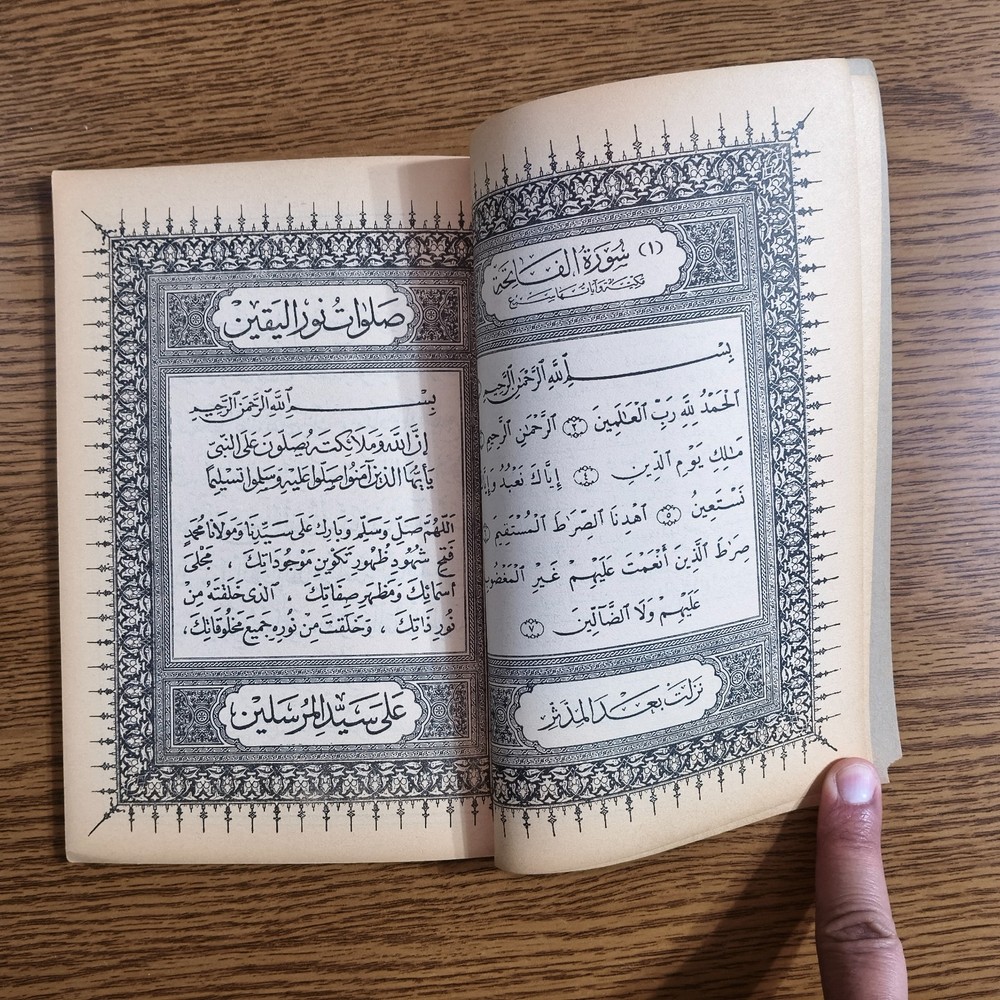 (١) سُورَةُ الفَاتِحَة
مكيّة وآياتها سبع
بِسْمِ ٱللَّهِ ٱلرَّحْمَٰنِ ٱلرَّحِيمِ
ٱلْحَمْدُ لِلَّهِ رَبِّ ٱلْعَٰلَمِينَ ٢ ٱلرَّحْمَٰنِ ٱلرَّحِيمِ
مَٰلِكِ يَوْمِ ٱلدِّينِ ٤ إِيَّاكَ نَعْبُدُ
نَسْتَعِينُ ٥ ٱهْدِنَا ٱلصِّرَٰطَ ٱلْمُسْتَقِيمَ
صِرَٰطَ ٱلَّذِينَ أَنْعَمْتَ عَلَيْهِمْ غَيْرِ ٱلْمَغْضُوبِ
عَلَيْهِمْ وَلَا ٱلضَّآلِّينَ ٧
نزلت بعد المدثر
صَلَوَاتُ نُورِ اليَقين
بِسْمِ ٱللَّهِ ٱلرَّحْمَٰنِ ٱلرَّحِيمِ
إِنَّ اللهَ وَمَلَائِكَتَهُ يُصَلُّونَ عَلَى النَّبِيِّ
يَا أَيُّهَا الَّذِينَ آمَنُوا صَلُّوا عَلَيْهِ وَسَلِّمُوا تَسْلِيمًا
اللّهُمَّ صَلِّ وَسَلِّمْ وَبَارِكْ عَلَى سَيِّدِنَا وَمَوْلَانَا مُحَمَّدٍ
فَتْحِ شُهُودِ ظُهُورِ تَكْوِينِ مَوْجُودَاتِكَ ، مَجْلَى
أَسْمَائِكَ وَمَظْهَرِ صِفَاتِكَ ، الَّذِي خَلَقْتَهُ مِنْ
نُورِ ذَاتِكَ ، وَخَلَقْتَ مِنْ نُورِهِ جَمِيعَ مَخْلُوقَاتِكَ ،
عَلَى سَيِّدِ المُرسَلين